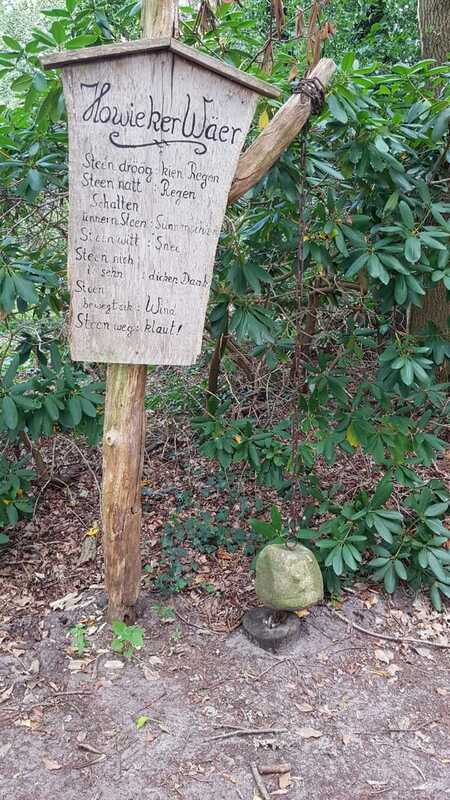 Howieker Wäer
Steen dröög : kien Regen
Steen natt : Regen
Schatten
ünnern Steen : Sünnenschien
Steen witt : Snee
Steen nich
to sehn : dicken Daak
Steen
bewegt sik : Wind
Steen weg : klaut!